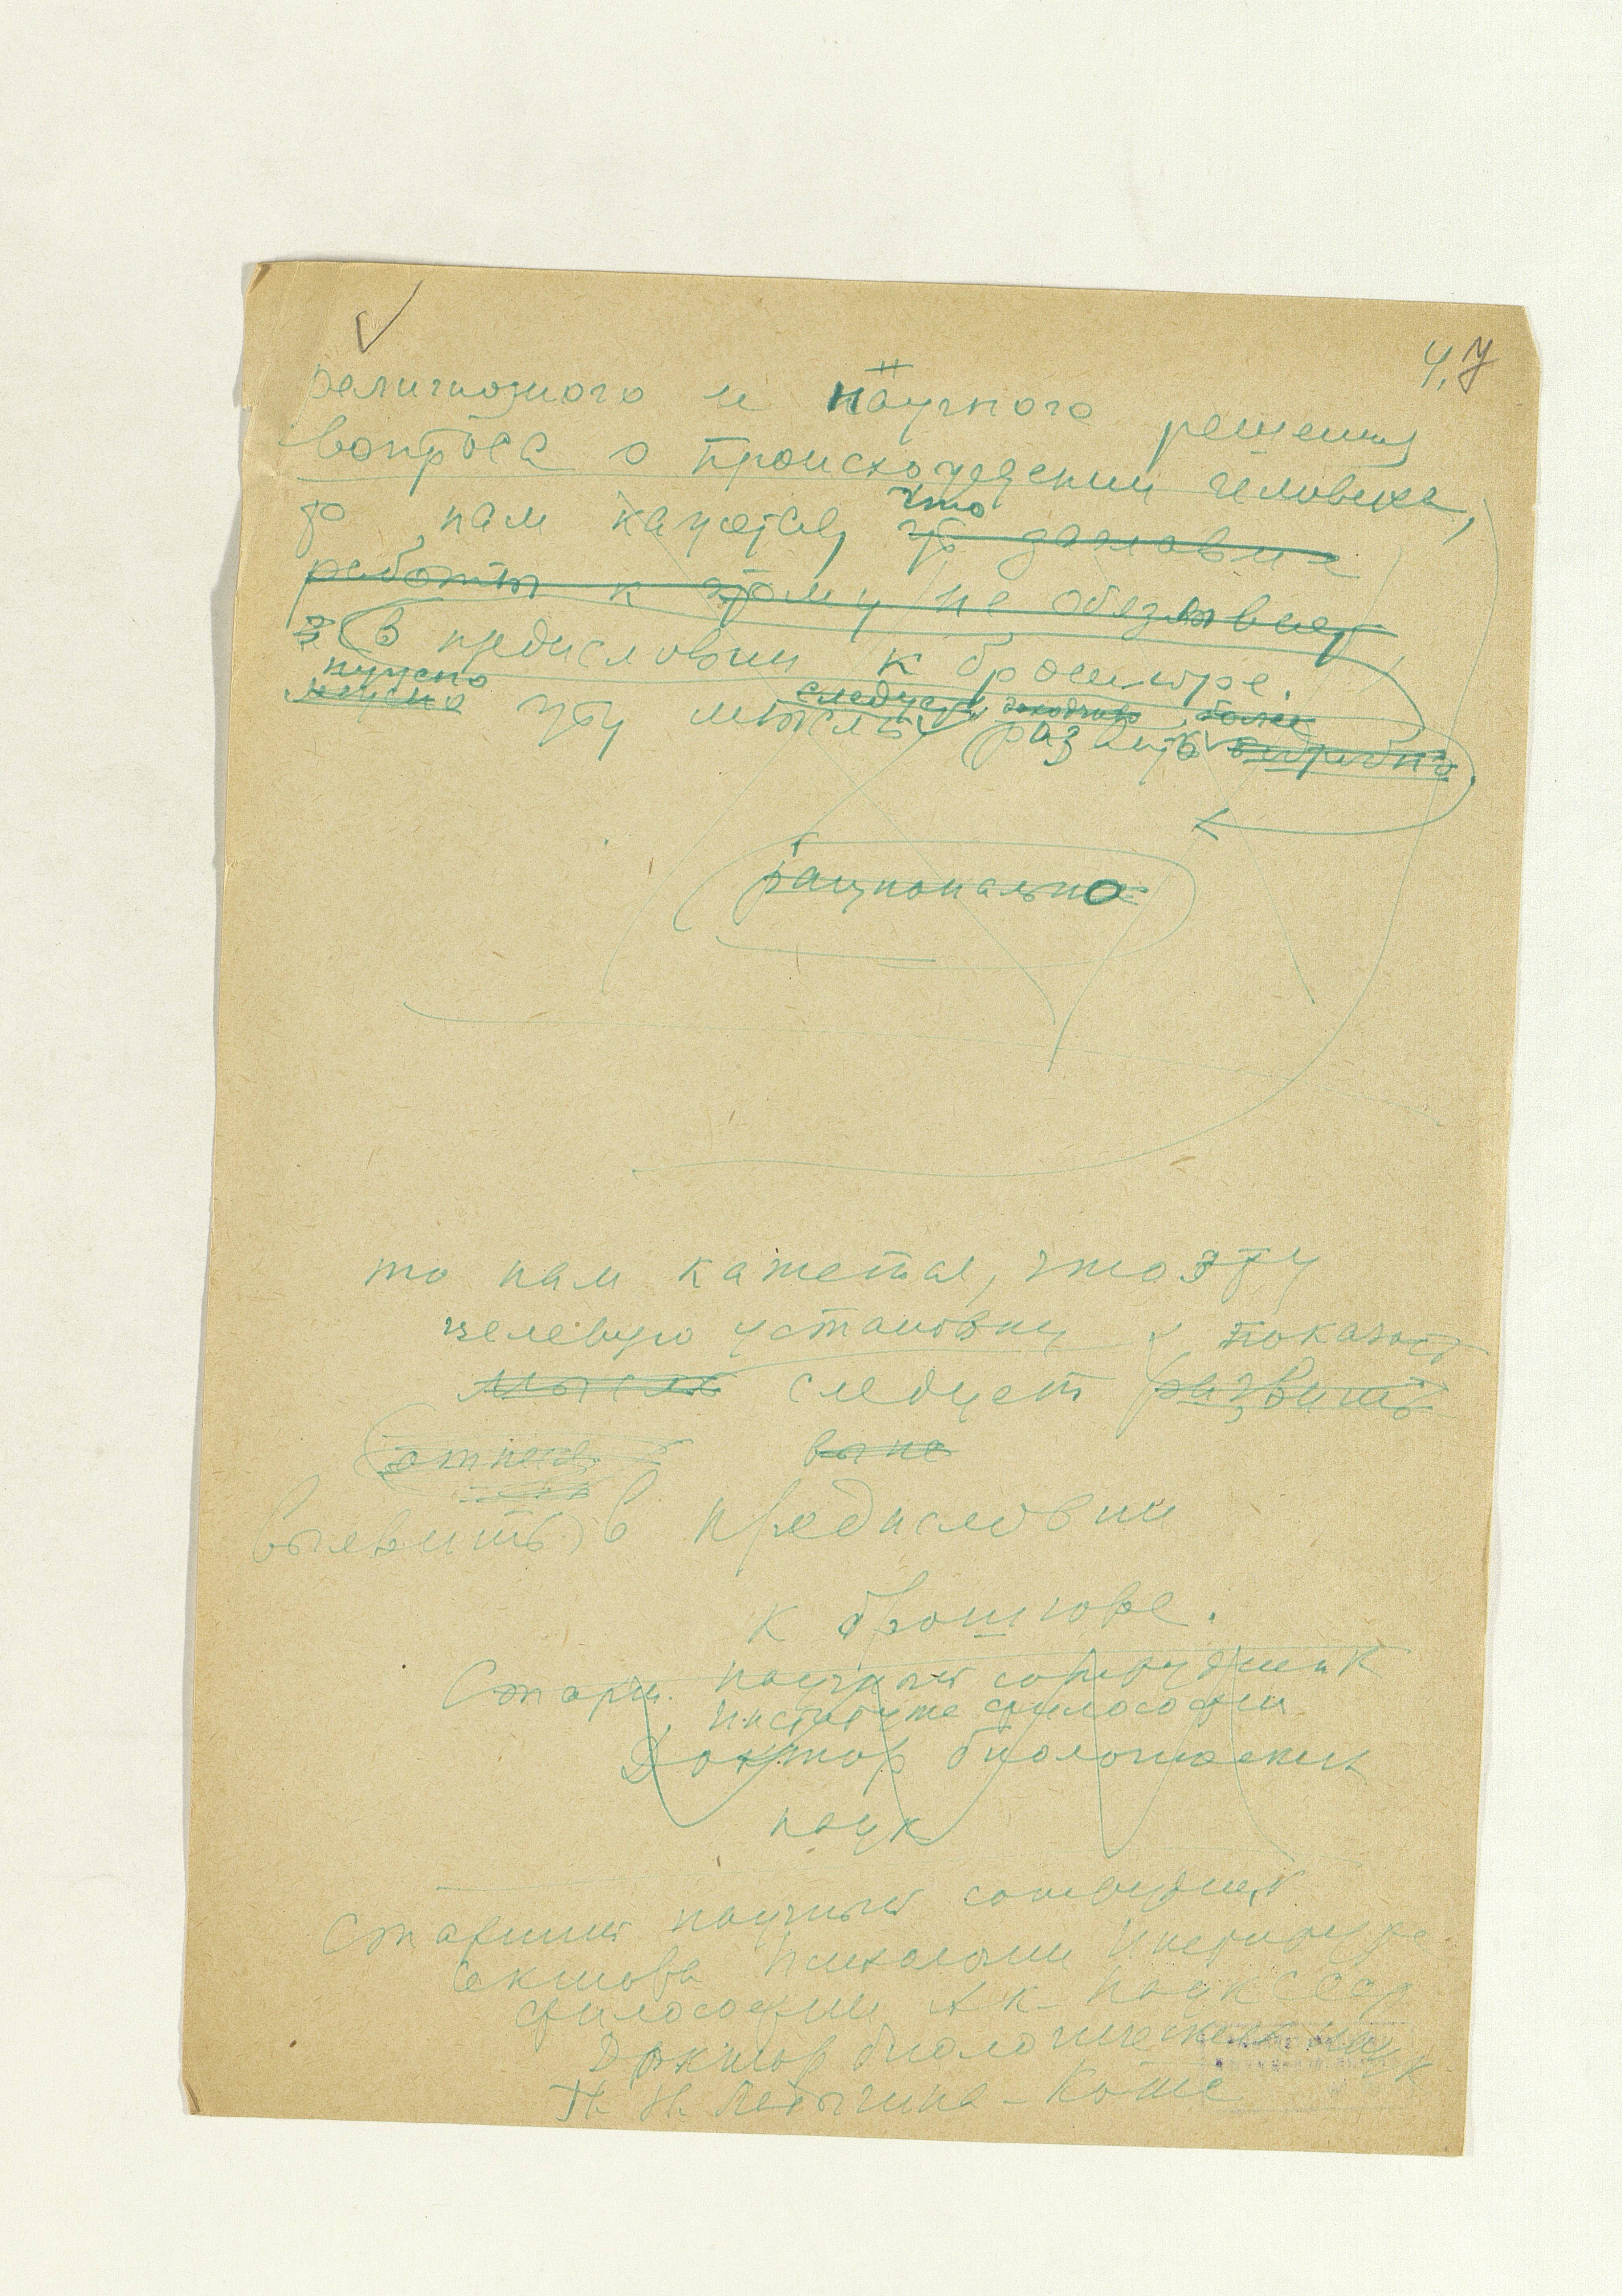 4. 7
религиозного и научного решения
вопроса о происхождении человека,
то нам кажется, что эт заглавие
работы к этому не обязывает
В предисловии к брошюре.
нужно
следует более
можно эту мысль развить подробно
рационально
то нам кажется, что эту
целевую установку показать
мысль следует развить
выявить в предисловии
к брошюре.
Старш. научный сотрудник
института философии
Доктор биологических
наук
Старший научный сотрудник
сектора психологии Института
философии Ак. Наук СССР
Доктор биологических наук
Н. Н. Ладыгина-Котс